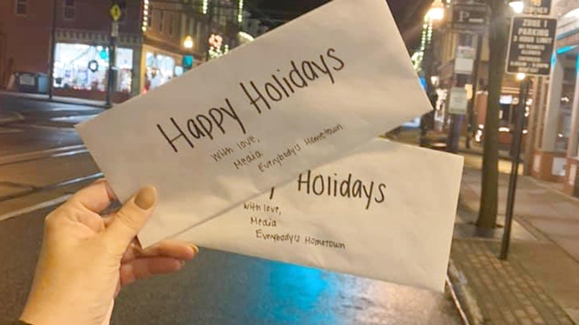 Happy Holidays
With love,
Media
Everybody's Hometown
y Holidays
With love,
Media
Everybody's Hometown
P
ZONE 1
PARKING
2 HOUR LIMIT